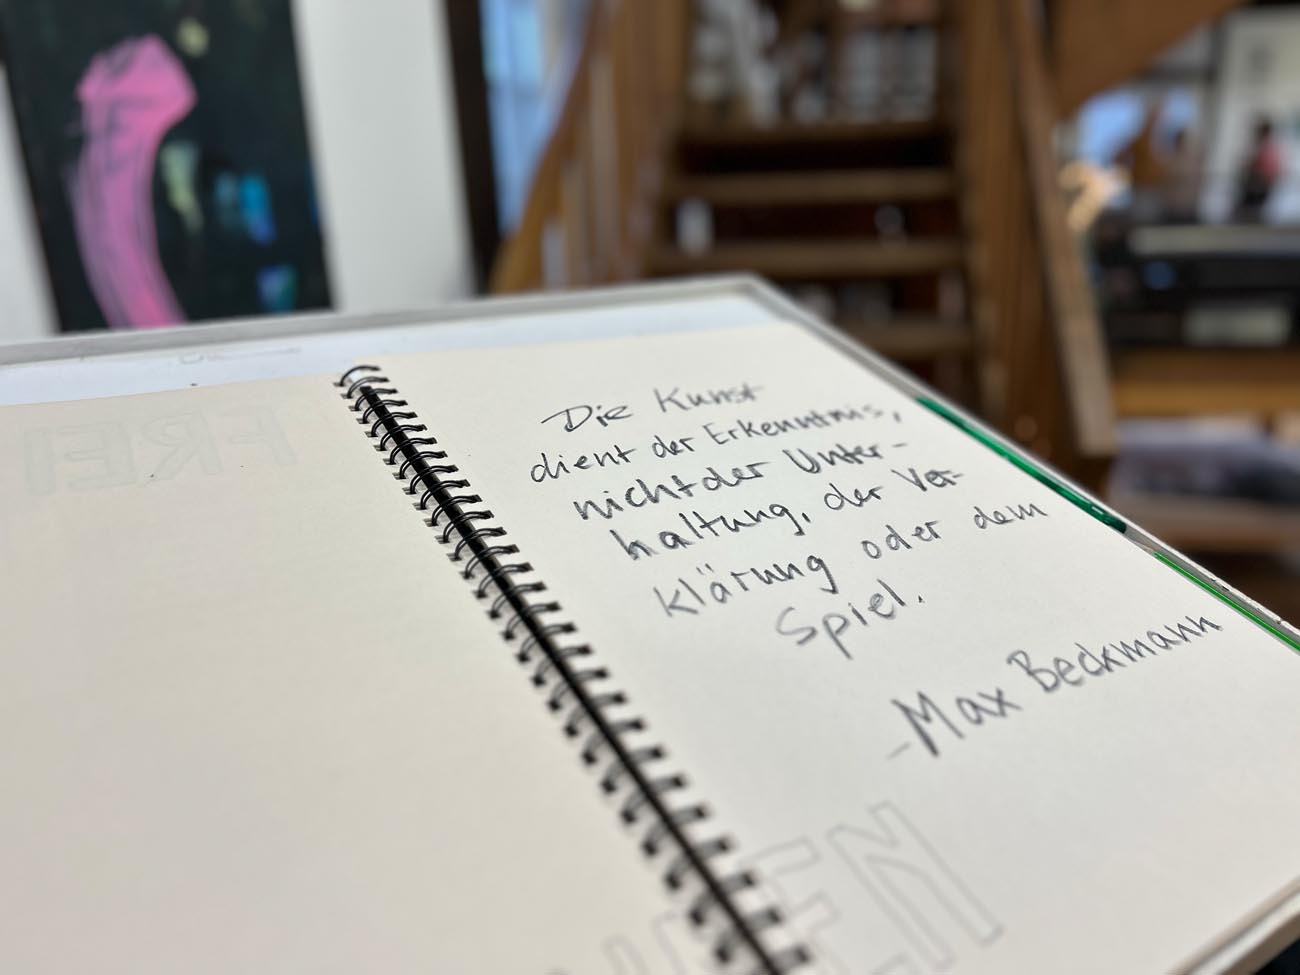 FREI
Die Kunst
dient der Erkenntnis,
nicht der Unter-
haltung, der Ver-
klärung oder dem
Spiel.
-Max Beckmann